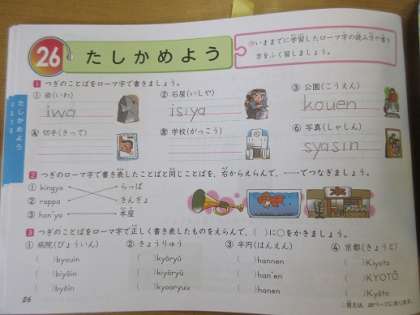 26
たしかめよう
いままでに学習したローマ字の読み方や書き方をふく習しましょう。
たしかめよう
1 つぎのことばをローマ字で書きましょう。
① 岩(いわ) ② 石屋(いしや) ③ 公園(こうえん)
iwa isiya kouen
④ 切手(きって) ⑤ 学校(がっこう) ⑥ 写真(しゃしん)
syasin
2 つぎのローマ字で書き表したことばと同じことばを、右からえらんで、――でつなぎましょう。
① kingyo らっぱ
② rappa きんぎょ
③ hon'ya 本屋
3 つぎのことばをローマ字で正しく書き表したものをえらんで、( )に○をかきましょう。
① 病院(びょういん) ② きょうりゅう ③ 半円(はんえん) ④ 京都(きょうと)
( )byouin ( )kyôryû ( )hannen ( )Kiyoto
( )byôin ( )kyôryû ( )han'en ( )KYOTÔ
( )byôin ( )kyooryuu ( )hanen ( )Kyôto
26